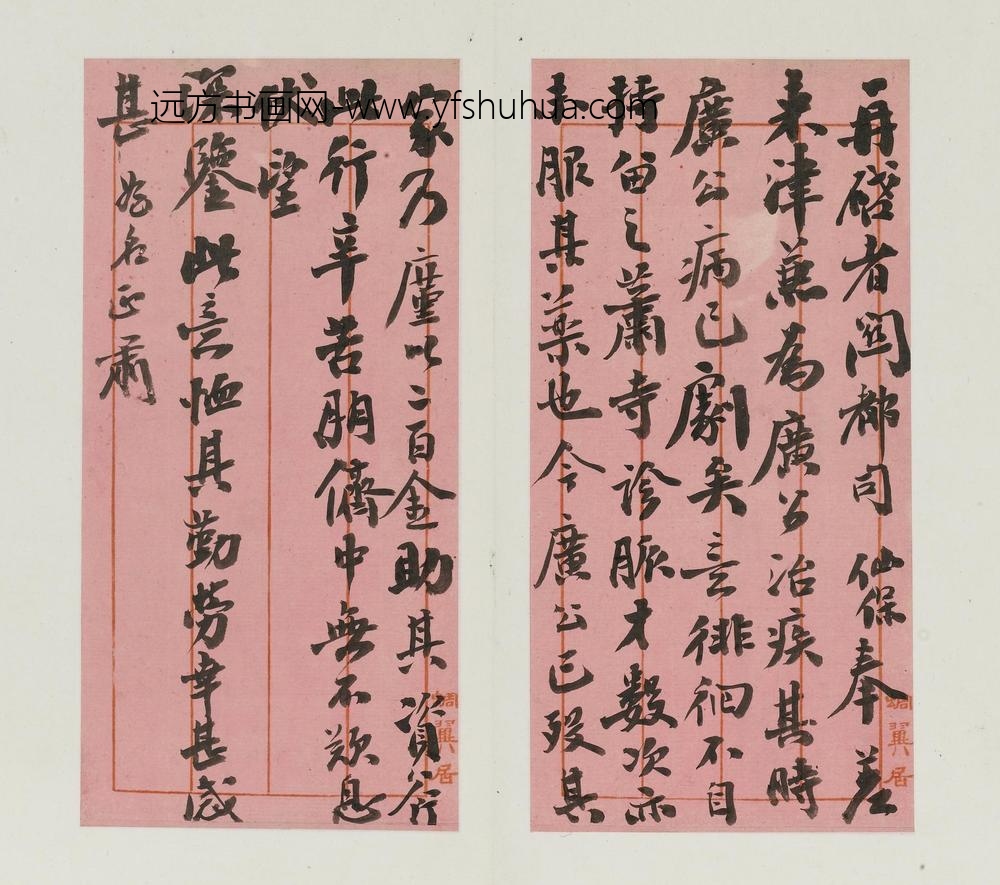 再啓者都司 仙保奉差
来津兼為廣公治疾其時
廣公病已劇矣意徘徊不自
持留之蕭寺診脈才數次亦
未服其藥也今廣公已歿其
蜩翼居
家乃廑以二百金助其資斧
此行辛苦朋儕中無不歎息
望
鑒此意恤其勤勞幸甚感
甚 名正肅
蜩翼居
远方书画网-www.yfshuhua.com